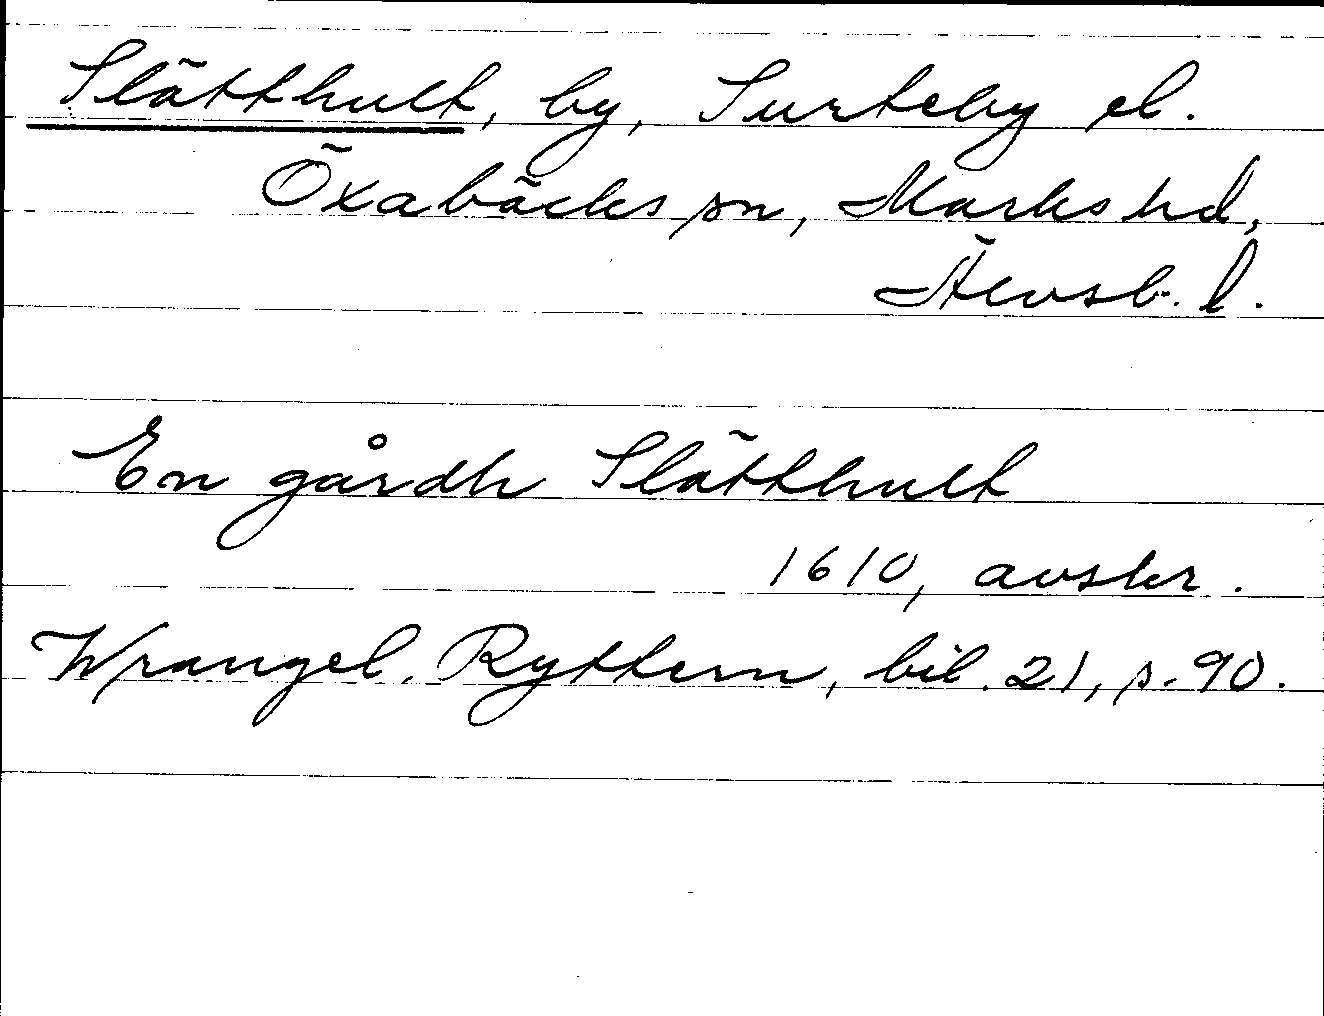 Slätthult, by, Surteby el.
Öxabäcks sn, Marks hd,
Älvsb. l.
En gårdh Slätthult
1610, avskr.
Wrangel. Ryttern, bil. 21, s. 90.